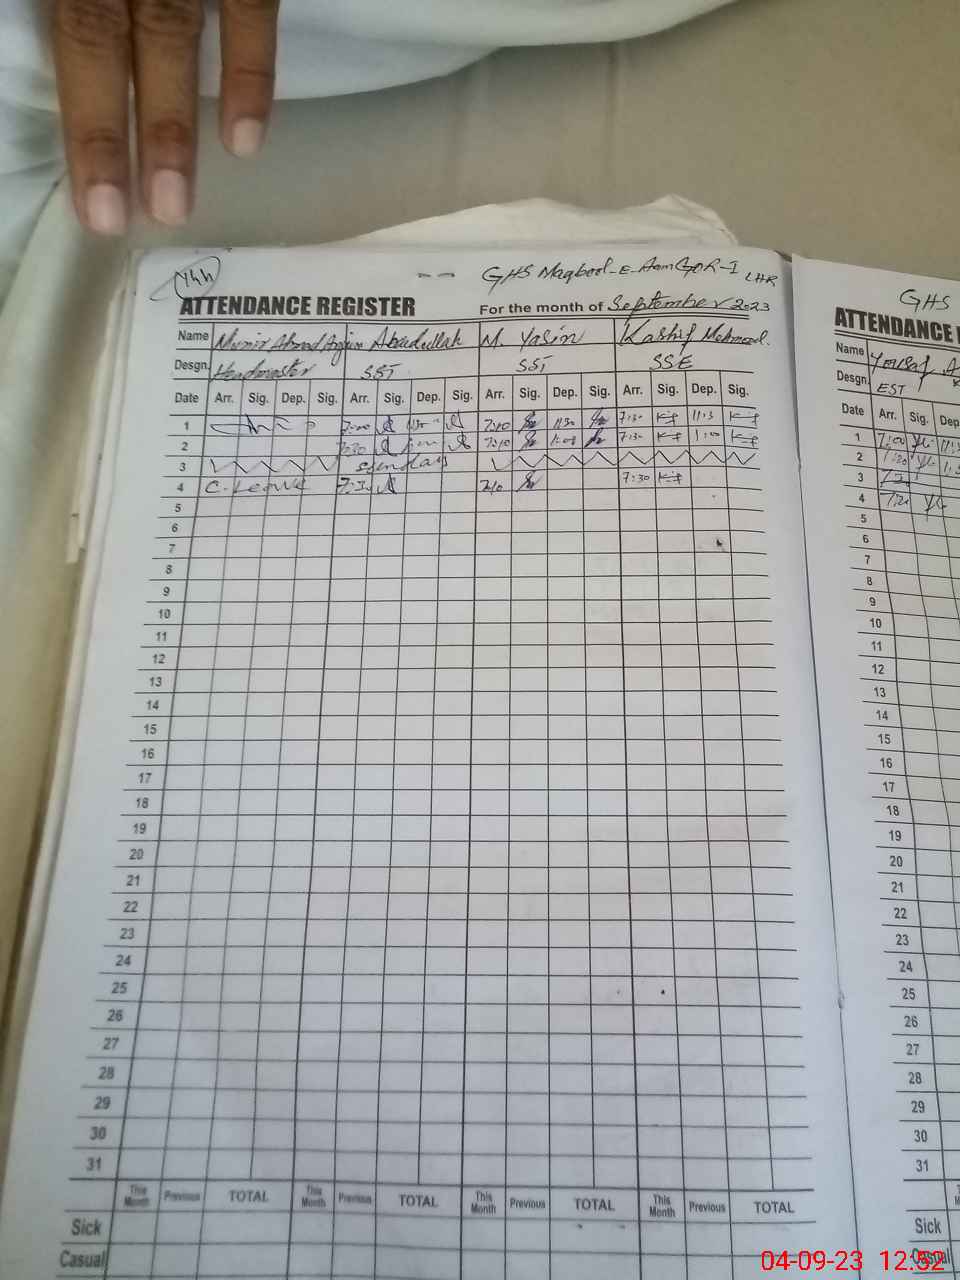 14h
GHS Maqbool-E-Aam GOR-I LHR
ATTENDANCE REGISTER For the month of September 2023
Name Munir Ahmad Anjum Abaidullah M. Yasin Kashif Mehmood.
Desgn. Headmaster SST SST SSE
Date Arr. Sig. Dep. Sig. Arr. Sig. Dep. Sig. Arr. Sig. Dep. Sig. Arr. Sig. Dep. Sig.
1 7:10 11:30 7:30 11:3
2 7:10 1:00 7:30 1:00
3 sunday
4 C. Leave 7:30 7:10 7:30
5
6
7
8
9
10
11
12
13
14
15
16
17
18
19
20
21
22
23
24
25
26
27
28
29
30
31
This Month Previous TOTAL This Month Previous TOTAL This Month Previous TOTAL This Month Previous TOTAL
Sick
Casual
GHS
ATTENDANCE
Name Yousaf
Desgn. EST
Date Arr. Sig. Dep
1 7:00
2
3
4
5
6
7
8
9
10
11
12
13
14
15
16
17
18
19
20
21
22
23
24
25
26
27
28
29
30
31
Sick
Casual
04-09-23 12:52